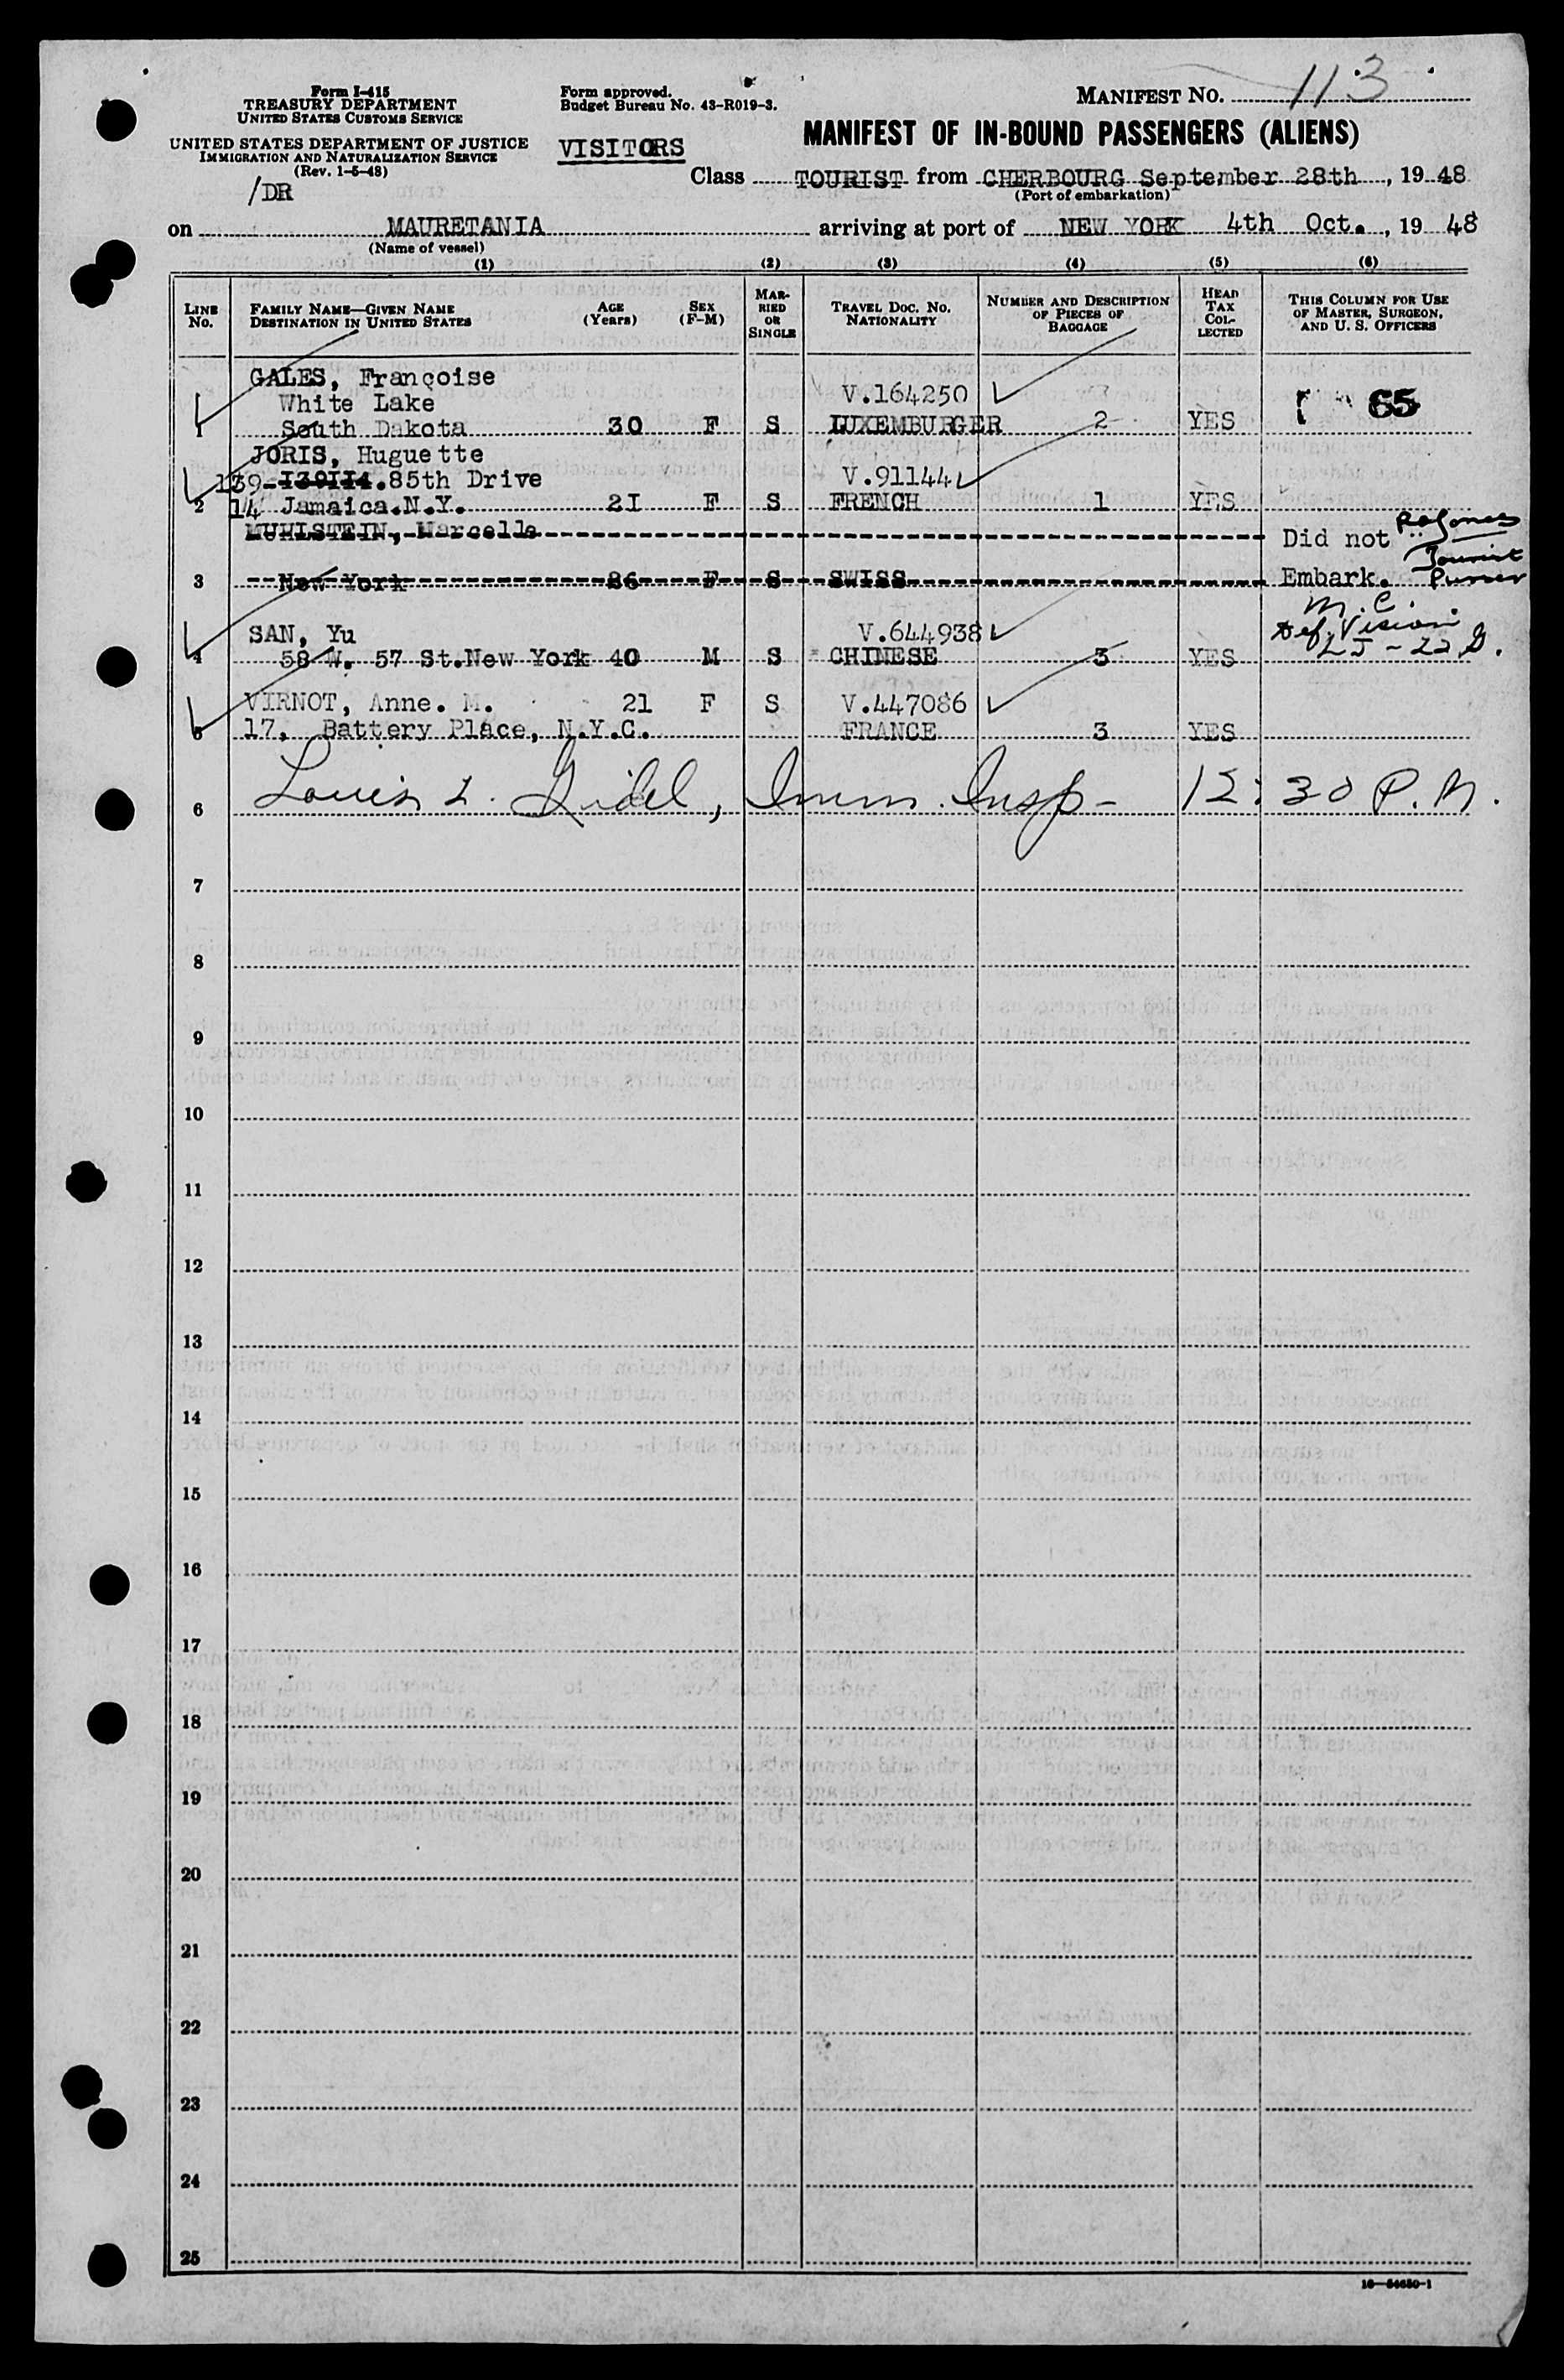 Form I-415
TREASURY DEPARTMENT
UNITED STATES CUSTOMS SERVICE
UNITED STATES DEPARTMENT OF JUSTICE
IMMIGRATION AND NATURALIZATION SERVICE
(Rev. 1-5-48)
/DR
Form approved.
Budget Bureau No. 43-R019-3.
VISITORS
MANIFEST NO. 113
MANIFEST OF IN-BOUND PASSENGERS (ALIENS)
Class TOURIST from CHERBOURG September 28th, 19 48
(Port of embarkation)
on MAURETANIA arriving at port of NEW YORK 4th Oct., 19 48
(Name of vessel)
(1) (2) (3) (4) (5) (6)
LINE No. FAMILY NAME—GIVEN NAME DESTINATION IN UNITED STATES AGE (Years) SEX (F-M) MARRIED OR SINGLE TRAVEL DOC. NO. NATIONALITY NUMBER AND DESCRIPTION OF PIECES OF BAGGAGE HEAD TAX COLLECTED THIS COLUMN FOR USE OF MASTER, SURGEON, AND U. S. OFFICERS
GALES, Françoise
White Lake V.164250
1 South Dakota 30 F S LUXEMBURGER 2 YES 65
JORIS, Huguette
139-I39II4.85th Drive V.91144
2 14 Jamaica.N.Y. 2I F S FRENCH 1 YES
MUHLSTEIN, Marcelle Did not
3 New York 86 F S SWISS Embark. Tourist Purser
M.C.
SAN, Yu V.644938 Def. Vision
4 58 W. 57 St.New York 40 M S CHINESE 3 YES
VIRNOT, Anne. M. 21 F S V.447086
5 17, Battery Place, N.Y.C. FRANCE 3 YES
6 Louis L. Gidel, Imm. Insp- 12:30 P.M.
7
8
9
10
11
12
13
14
15
16
17
18
19
20
21
22
23
24
25
16—54650-1